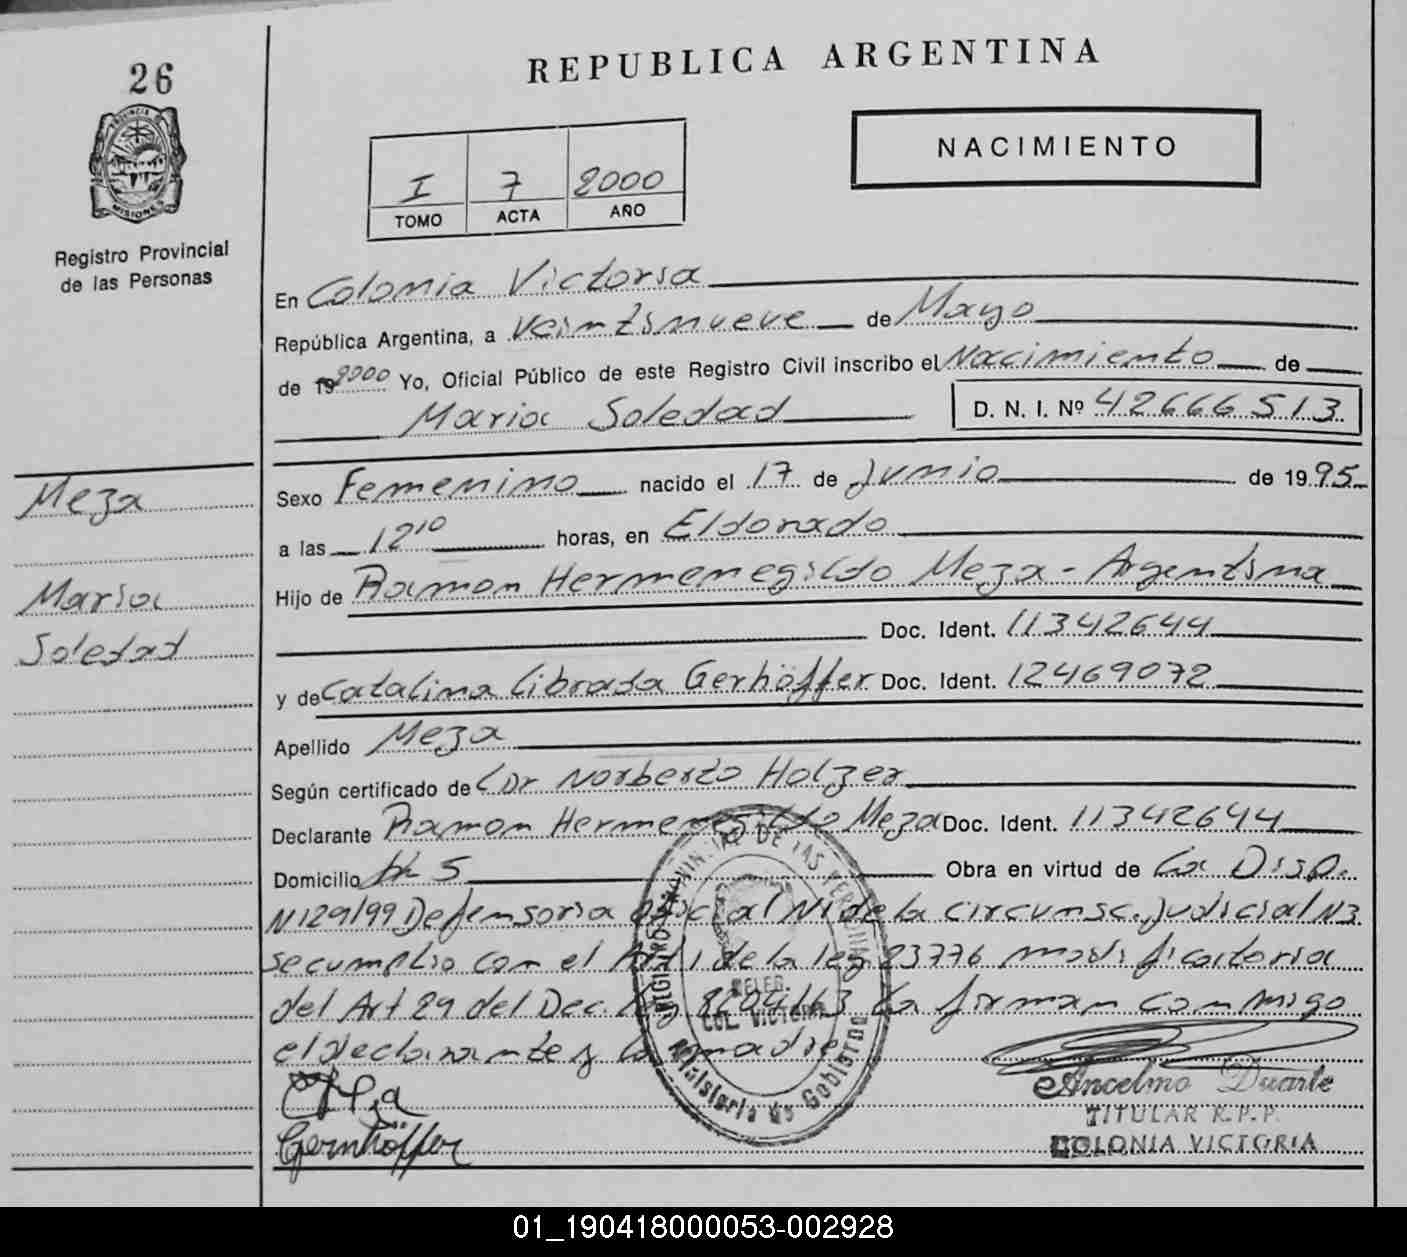 26
REPUBLICA ARGENTINA
PROVINCIA DE
MISIONES
NACIMIENTO
I 7 2000
TOMO ACTA AÑO
Registro Provincial
de las Personas
En Colonia Victoria
República Argentina, a Veintinueve de Mayo
de 19 2000 Yo, Oficial Público de este Registro Civil inscribo el Nacimiento de
Maria Soledad D. N. I. Nº 42666513
Meza
Maria
Soledad
Sexo Femenino nacido el 17 de Junio de 1995
a las 12 10 horas, en Eldorado
Hijo de Ramon Hermenegildo Meza - Argentina
Doc. Ident. 11342644
y de Catalina Librada Gerhöffer Doc. Ident. 12469072
Apellido Meza
Según certificado de Dr Norberto Holzer
Declarante Ramon Hermenegildo Meza Doc. Ident. 11342644
Domicilio 5 Obra en virtud de la Disp.
N129/99 Defensoria oficial N1 de la circunsc. Judicial N3
se cumplio con el Art 1 de la ley 23776 modificatoria
del Art 29 del Dec. ley 8204/63 la firman conmigo
el declarante y la madre
REGISTRO PROVINCIAL DE LAS PERSONAS
DELEG.
COL. VICTORIA
Ministerio de Gobierno
Gernhöffer
Ancelmo Duarte
TITULAR R.P.P.
COLONIA VICTORIA
01_190418000053-002928